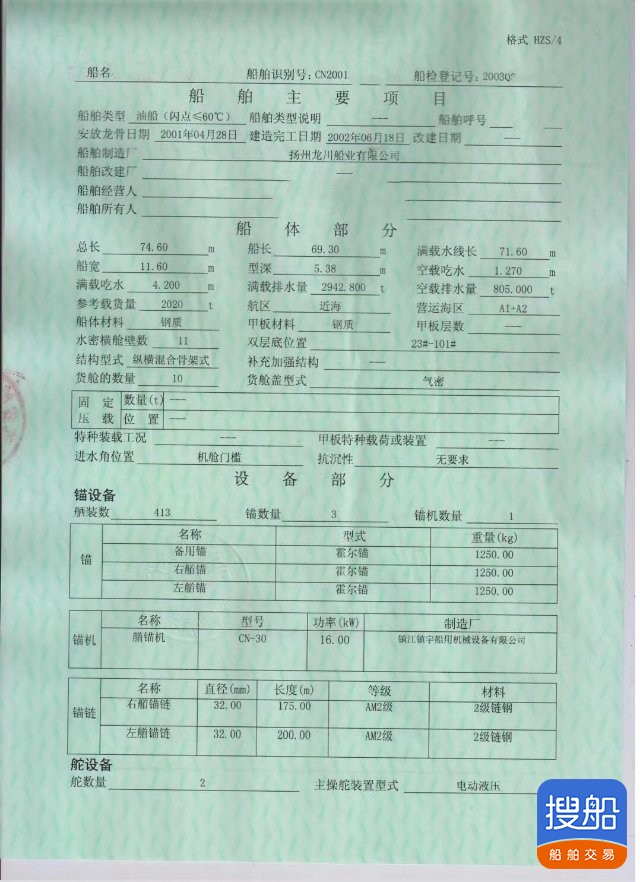 格式 HZS/4
船名 船舶识别号:CN2001 船检登记号:2003
船 舶 主 要 项 目
船舶类型 油船（闪点≤60℃） 船舶类型说明 --- 船舶呼号
安放龙骨日期 2001年04月28日 建造完工日期 2002年06月18日 改建日期 ---
船舶制造厂 扬州龙川船业有限公司
船舶改建厂 ---
船舶经营人
船舶所有人
船 体 部 分
总长 74.60 m 船长 69.30 m 满载水线长 71.60 m
船宽 11.60 m 型深 5.38 m 空载吃水 1.270 m
满载吃水 4.200 m 满载排水量 2942.800 t 空载排水量 805.000 t
参考载货量 2020 t 航区 近海 营运海区 A1+A2
船体材料 钢质 甲板材料 钢质 甲板层数 ---
水密横舱壁数 11 双层底位置 23#-101#
结构型式 纵横混合骨架式 补充加强结构 ---
货舱的数量 10 货舱盖型式 气密
固 定 数量(t) ---
压 载 位 置 ---
特种装载工况 --- 甲板特种载荷或装置 ---
进水角位置 机舱门槛 抗沉性 无要求
设 备 部 分
锚设备
舾装数 413 锚数量 3 锚机数量 1
名称 型式 重量(kg)
锚
备用锚 霍尔锚 1250.00
右艏锚 霍尔锚 1250.00
左艏锚 霍尔锚 1250.00
名称 型号 功率(kW) 制造厂
锚机 艏锚机 CN-30 16.00 镇江镇宇船用机械设备有限公司
名称 直径(mm) 长度(m) 等级 材料
锚链
右艏锚链 32.00 175.00 AM2级 2级链钢
左艏锚链 32.00 200.00 AM2级 2级链钢
舵设备
舵数量 2 主操舵装置型式 电动液压
搜船
船舶交易